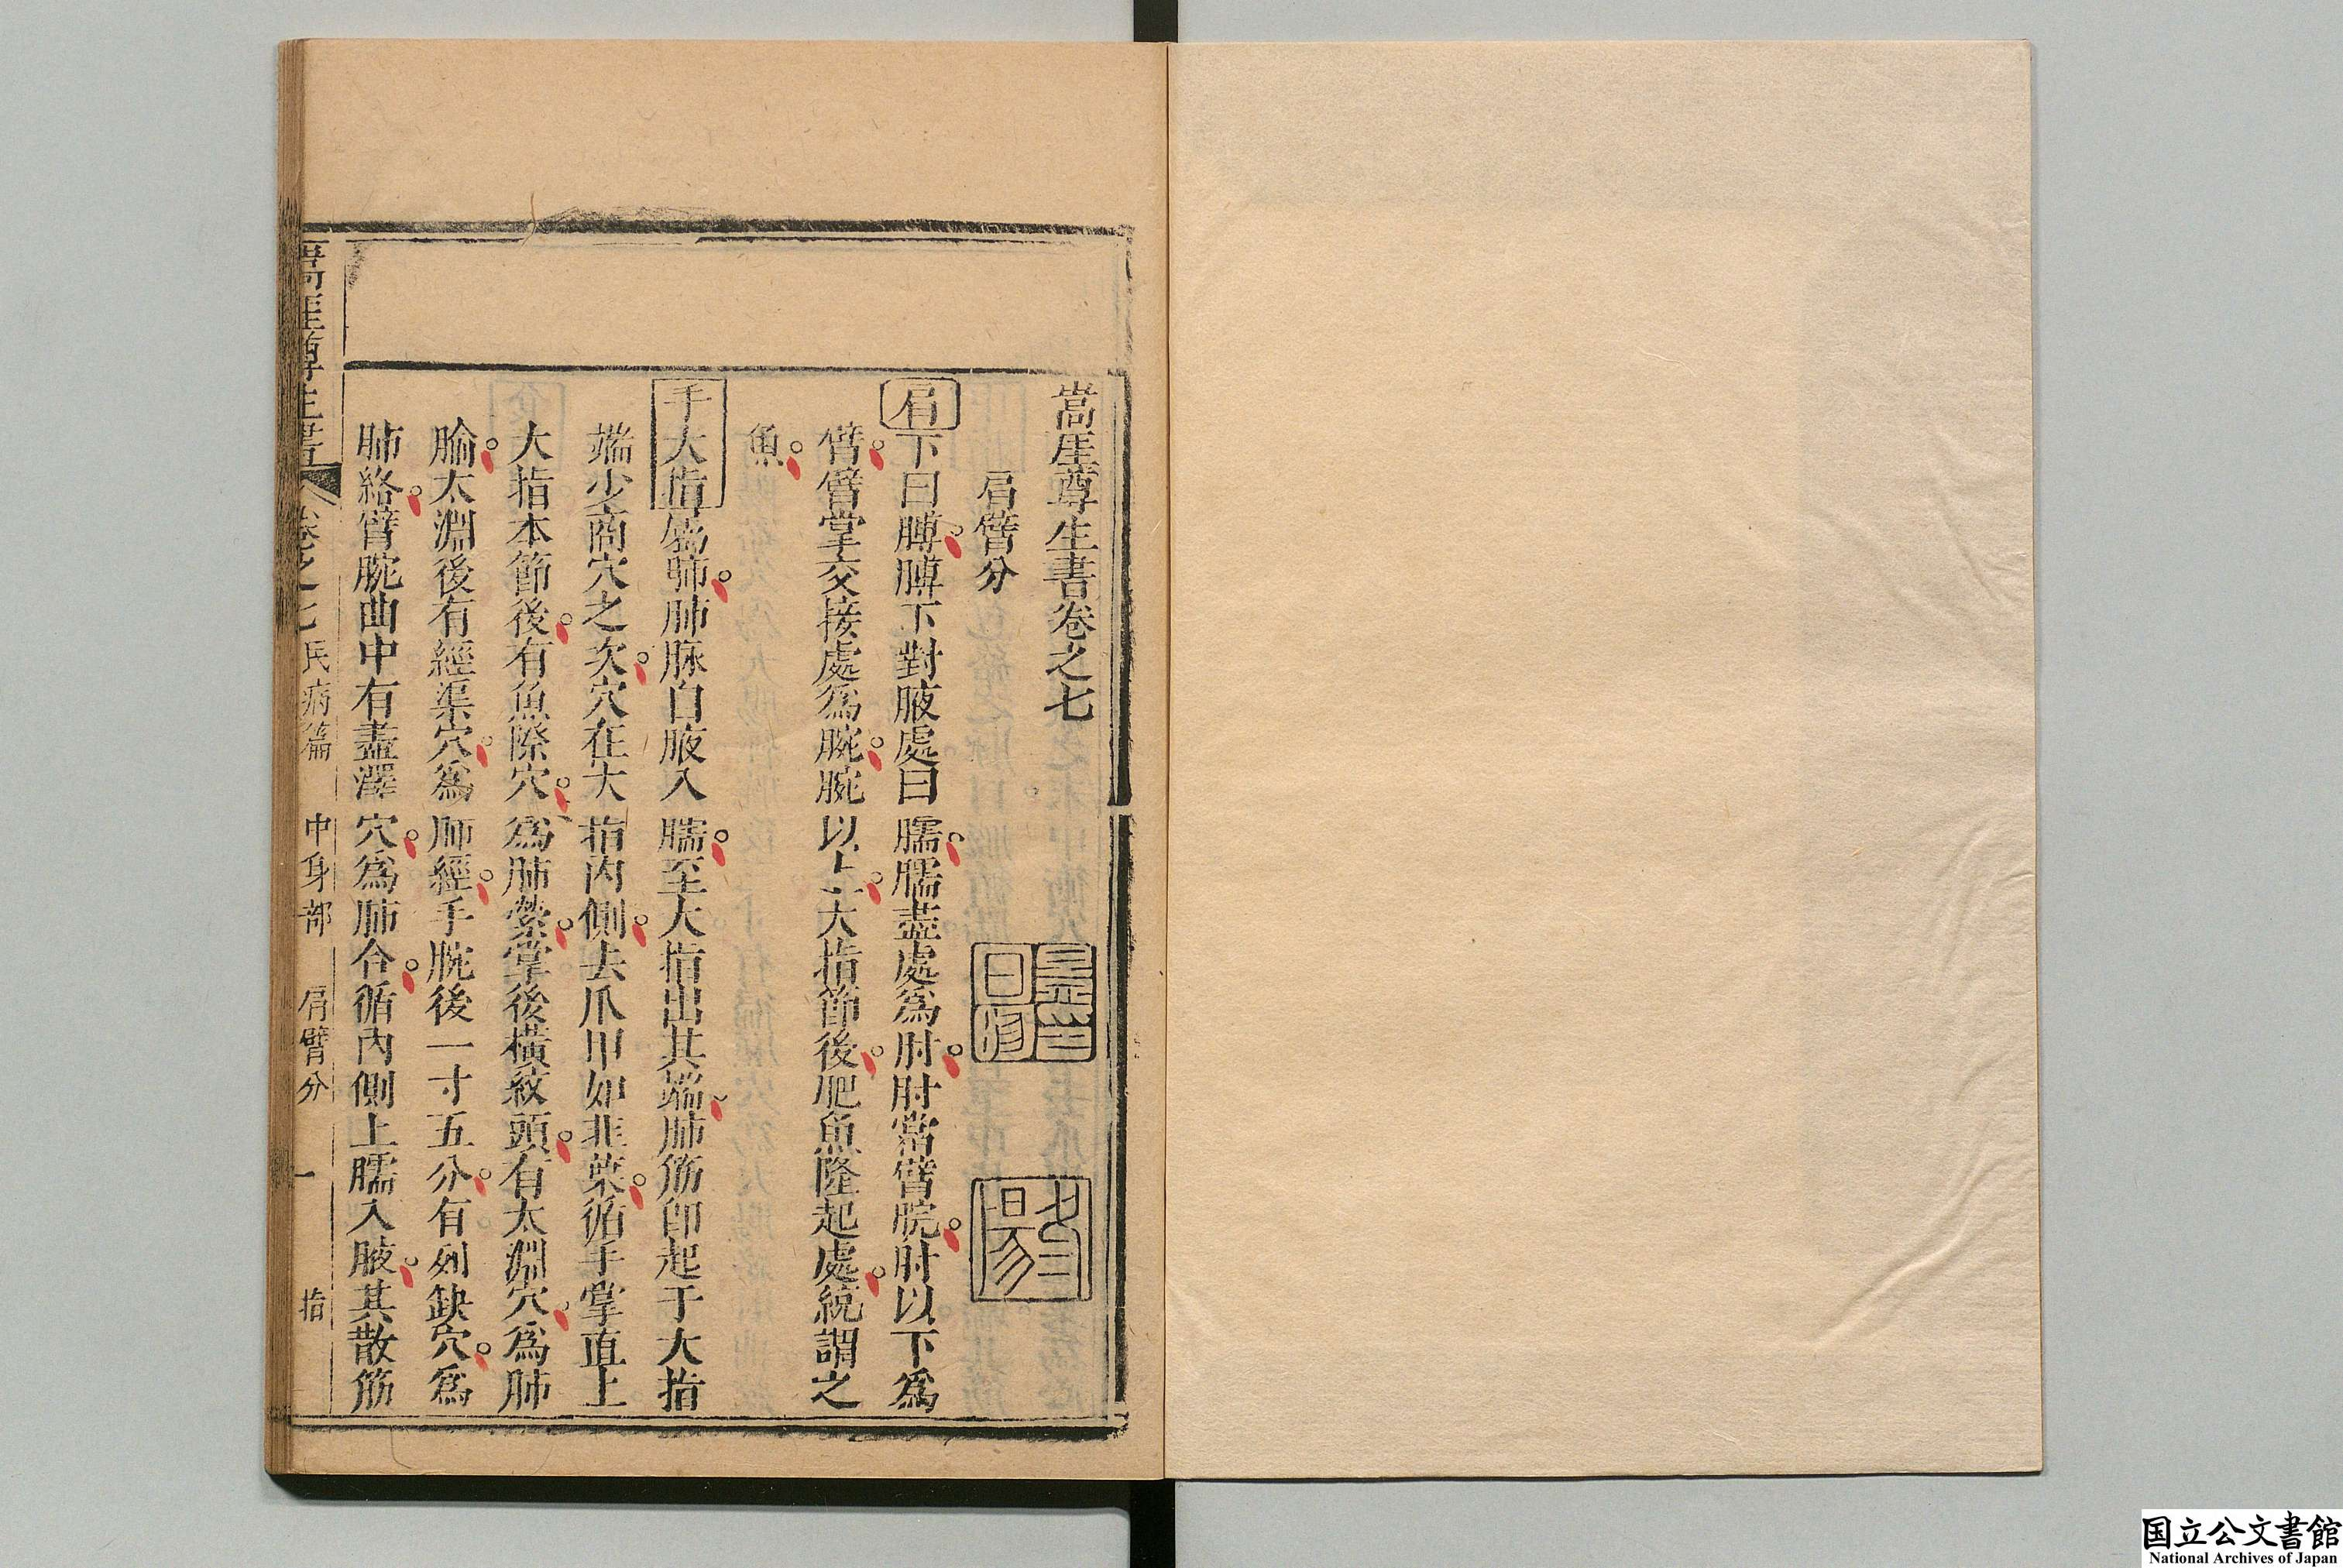 嵩厓尊生書卷之七
肩臂分
肩下曰膊膊下對腋處曰臑臑盡處爲肘肘當臂腕肘以下爲
臂臂掌交接處爲腕腕以上大指節後肥魚隆起處統謂之
魚
手大指屬肺肺脉自腋入臑至大指出其端肺筋卽起于大指
端少商穴之次穴在大指內側去爪甲如韭葉循手掌直上
大指本節後有魚際穴爲肺滎掌後橫紋頭有太淵穴爲肺
腧太淵後有經渠穴爲肺經手腕後一寸五分有列缺穴爲
肺絡臂腕曲中有盡澤穴爲肺合循內側上臑入腋其散筋
嵩厓尊生書 卷之七 氏病篇 中身部 肩臂分 一 指
国立公文書館
National Archives of Japan